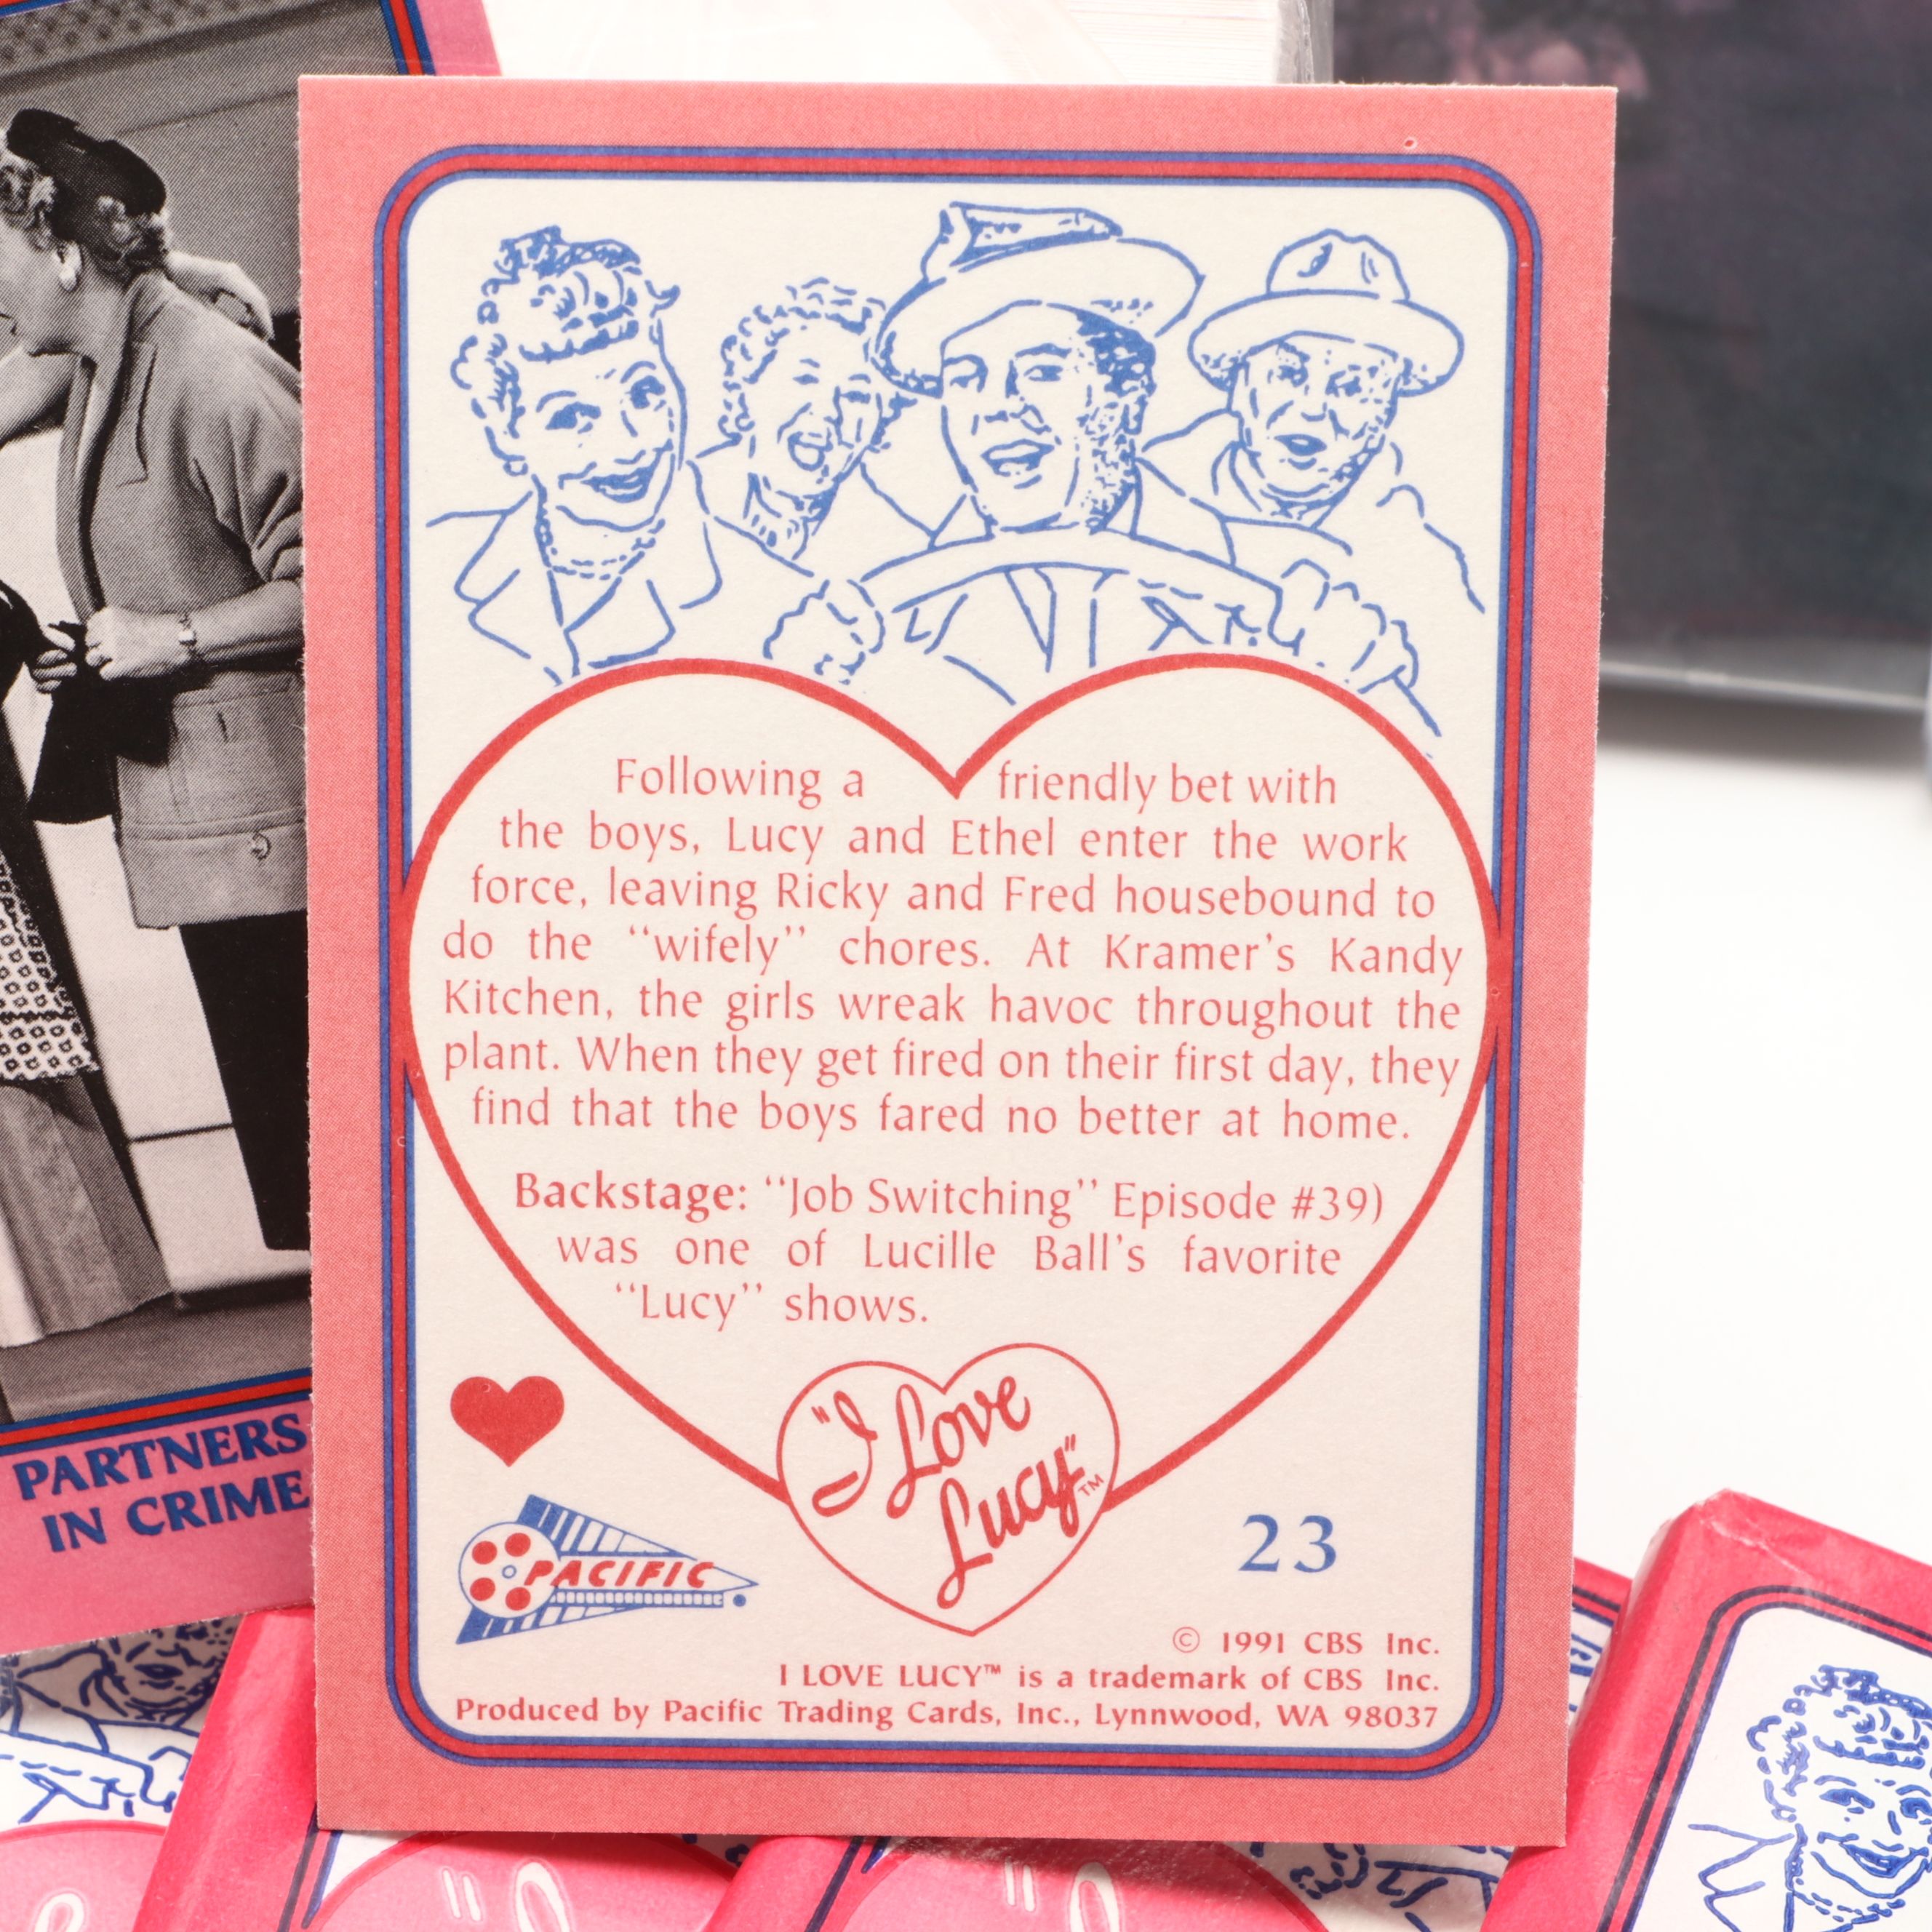 Following a friendly bet with
the boys, Lucy and Ethel enter the work
force, leaving Ricky and Fred housebound to
do the "wifely" chores. At Kramer's Kandy
Kitchen, the girls wreak havoc throughout the
plant. When they get fired on their first day, they
find that the boys fared no better at home.
Backstage: "Job Switching" Episode #39)
was one of Lucille Ball's favorite
"Lucy" shows.
"I Love
Lucy"™
PACIFIC
23
© 1991 CBS Inc.
I LOVE LUCY™ is a trademark of CBS Inc.
Produced by Pacific Trading Cards, Inc., Lynnwood, WA 98037
PARTNERS
IN CRIME